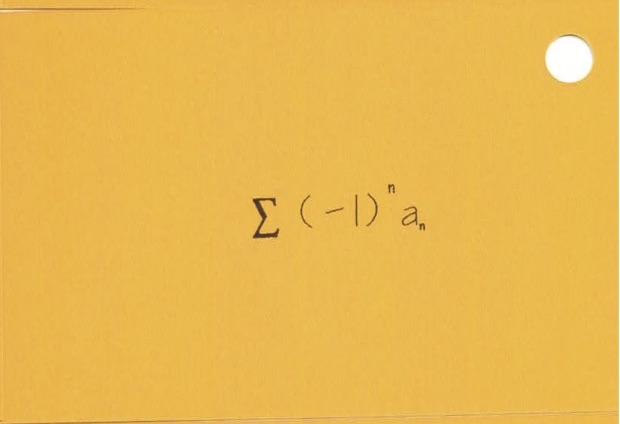 ∑ (-1)ⁿ aₙ